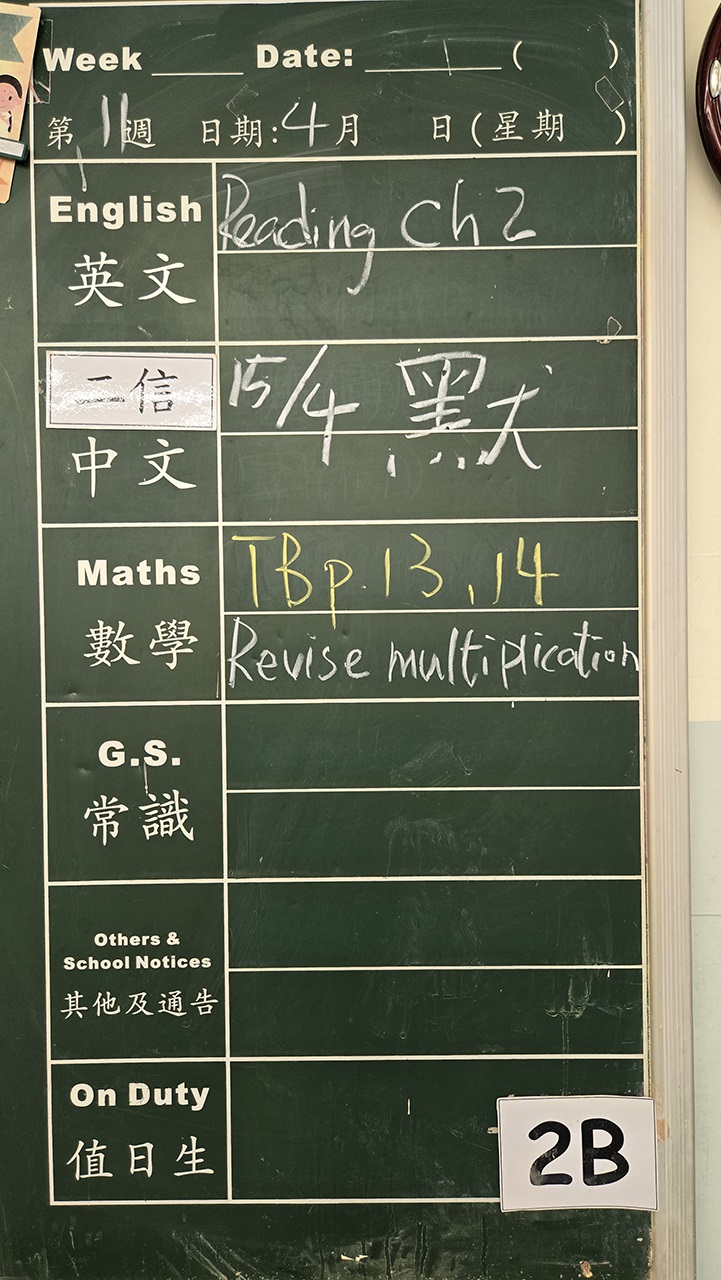 Week ____ Date: ______ ( )
第11週 日期:4月 日(星期 )
English
英文
Reading Ch 2
二信
中文
15/4 默
Maths
數學
TB p.13,14
Revise multiplication
G.S.
常識
Others &
School Notices
其他及通告
On Duty
值日生
2B